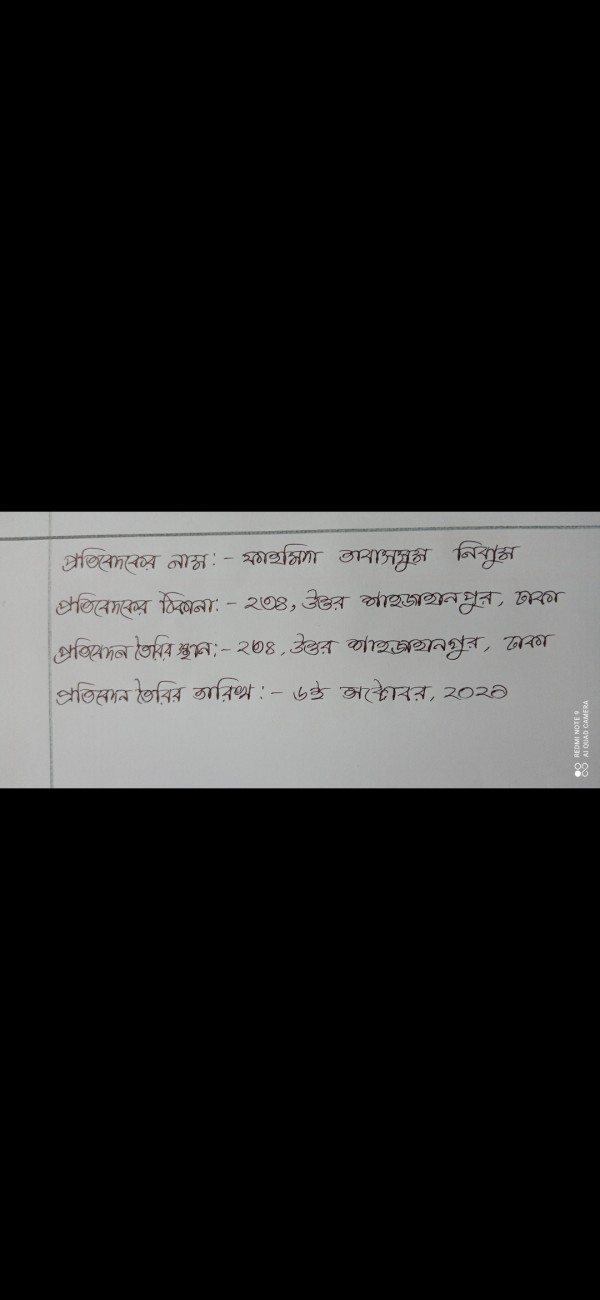 প্রতিবেদকের নাম:- ফাহমিদা তাবাসসুম নিঝুম
প্রতিবেদকের ঠিকানা:- ২৩৪, উত্তর শাহজাহানপুর, ঢাকা
প্রতিবেদন তৈরির স্থান:- ২৩৪, উত্তর শাহজাহানপুর, ঢাকা
প্রতিবেদন তৈরির তারিখ:- ৬ই অক্টোবর,
REDMI NOTE 9
AI QUAD CAMERA